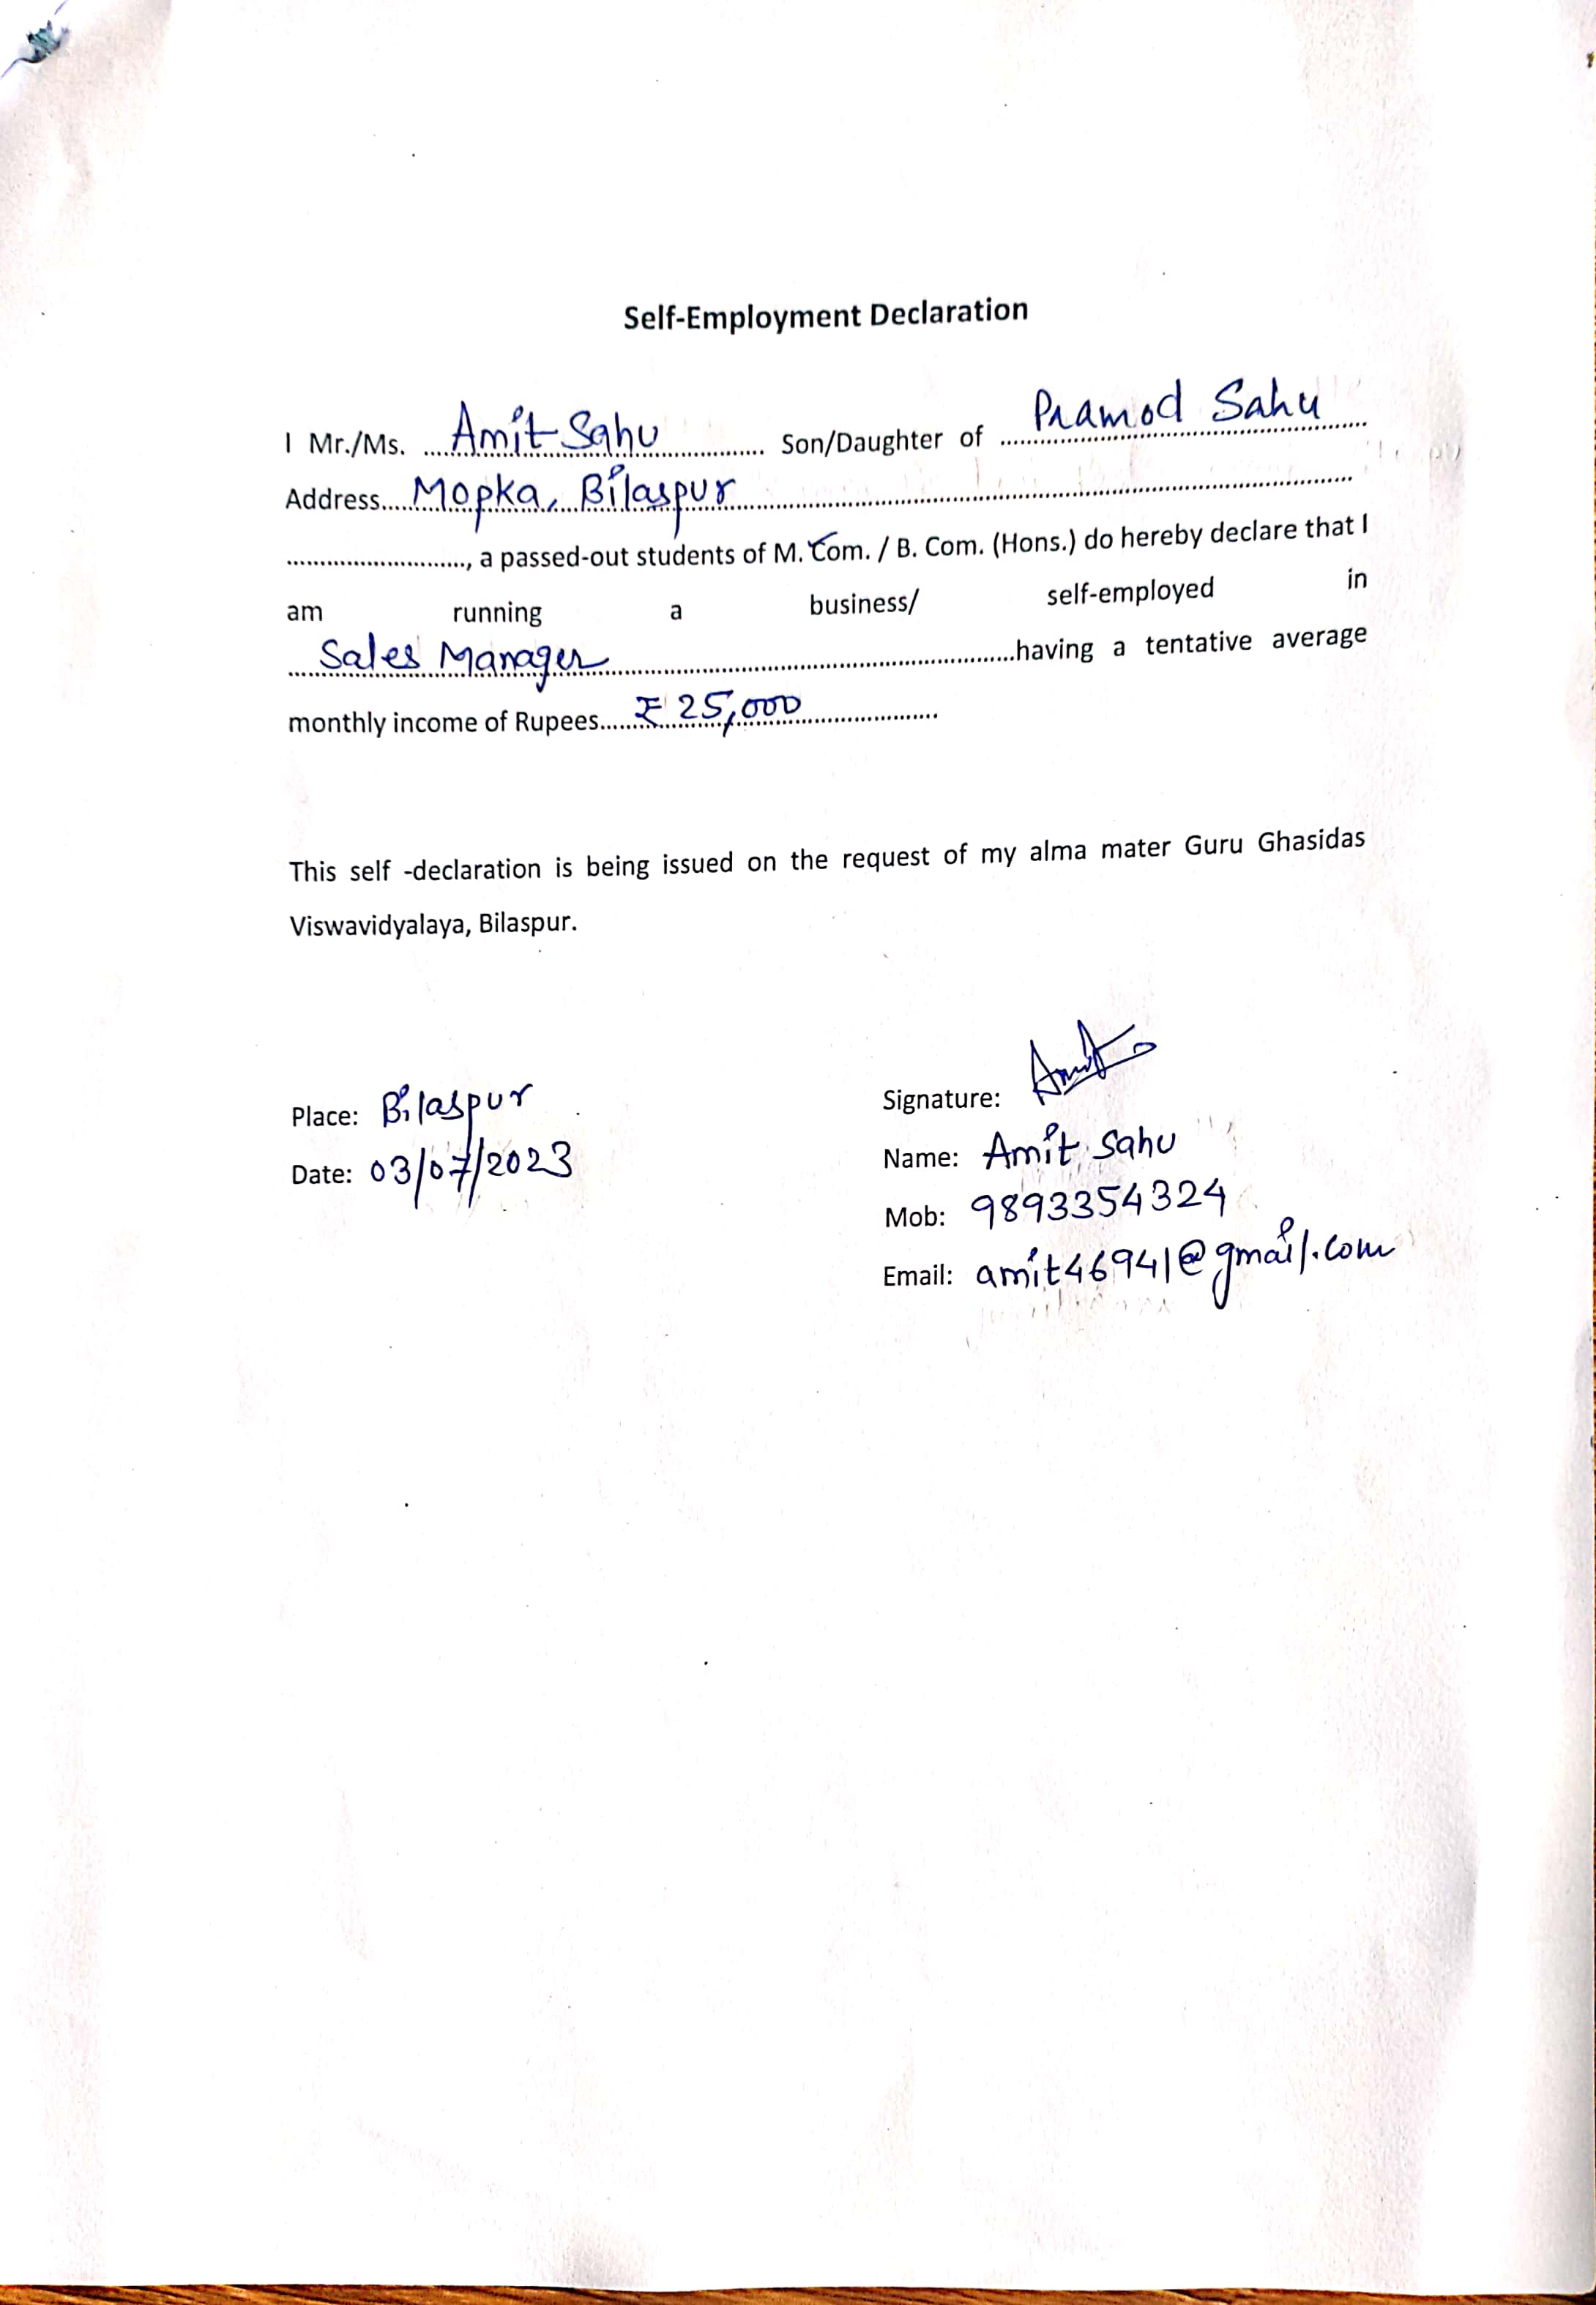 Self-Employment Declaration
I Mr./Ms. ....Amit Sahu.... Son/Daughter of ....Pramod Sahu....
Address....Mopka, Bilaspur....
............................, a passed-out students of M. Com. / B. Com. (Hons.) do hereby declare that I
am running a business/ self-employed in
....Sales Manager....having a tentative average
monthly income of Rupees....₹ 25,000....
This self -declaration is being issued on the request of my alma mater Guru Ghasidas
Viswavidyalaya, Bilaspur.
Place: Bilaspur
Date: 03/07/2023
Signature: Amit
Name: Amit Sahu
Mob: 9893354324
Email: amit46941@gmail.com